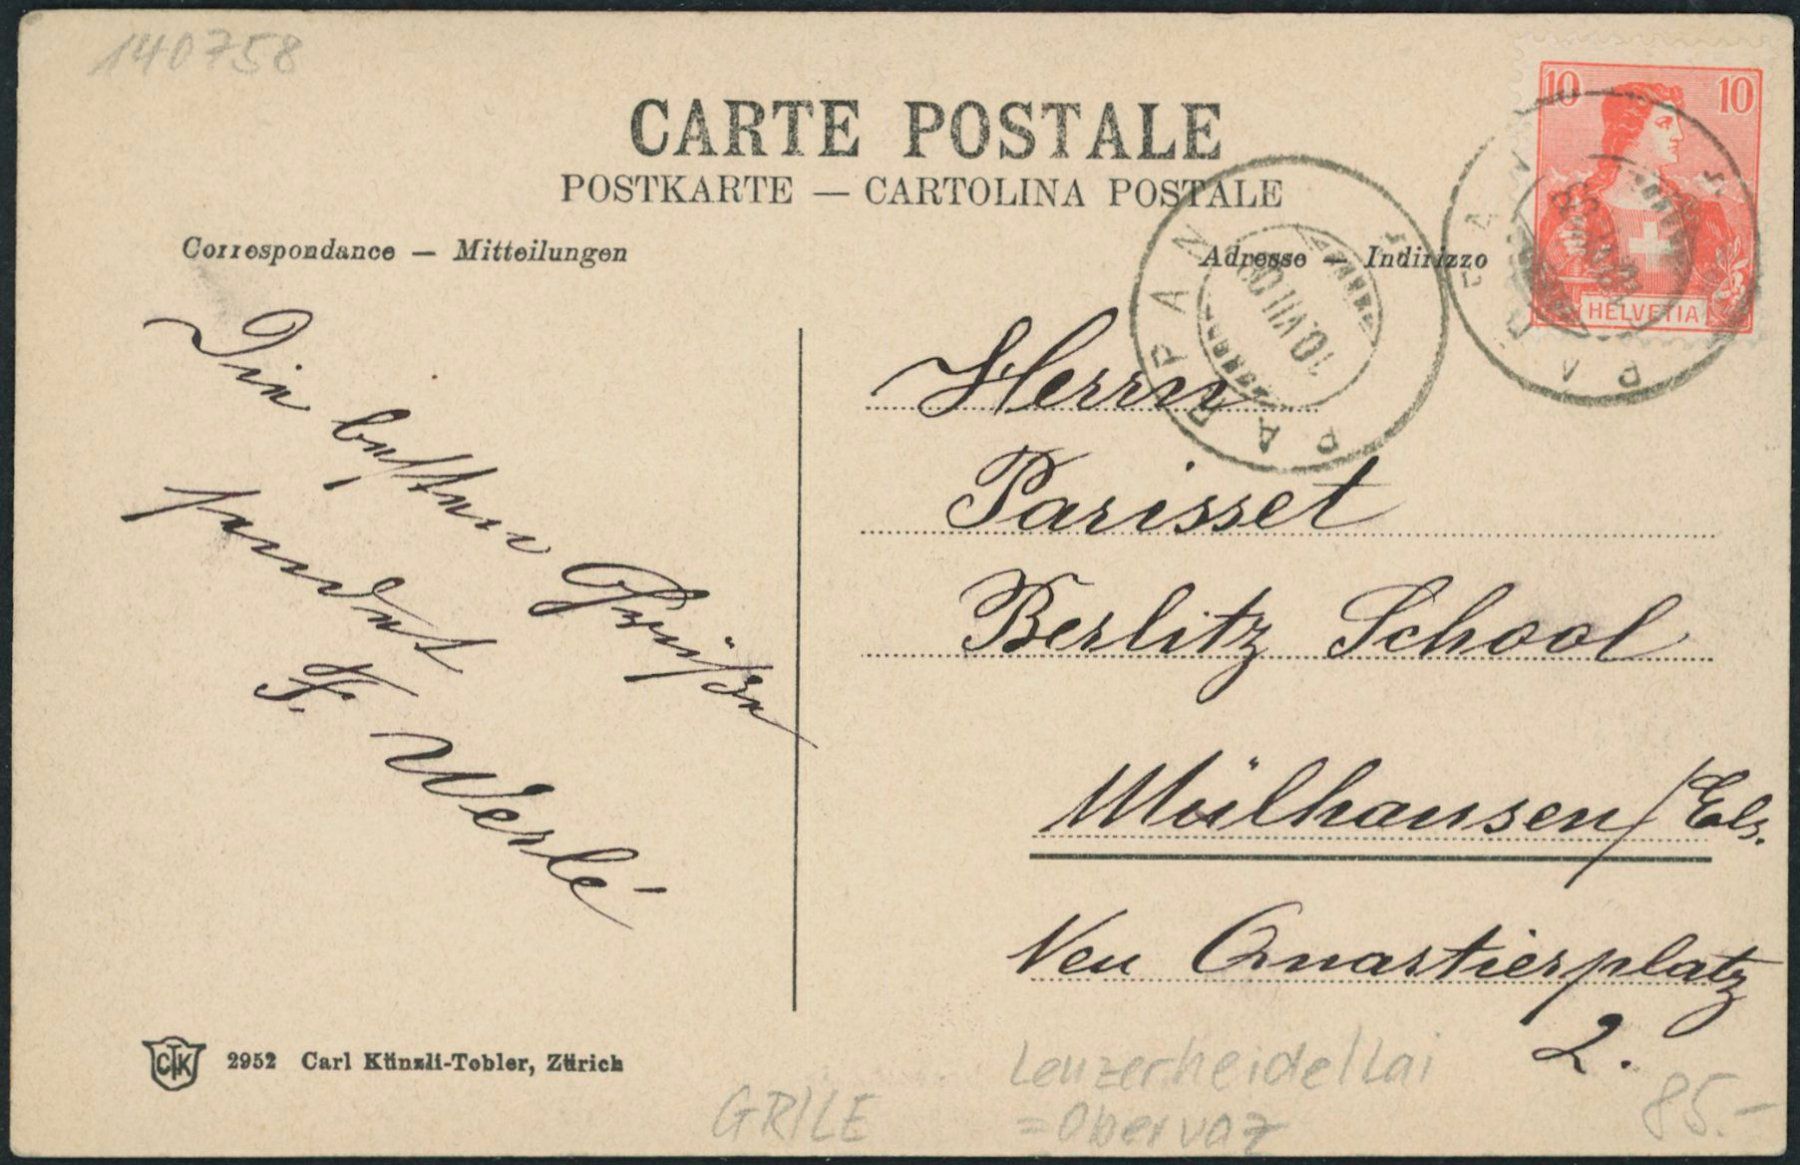 140758
CARTE POSTALE
POSTKARTE — CARTOLINA POSTALE
Correspondance — Mitteilungen
Adresse — Indirizzo
10 10
HELVETIA
PARPAN
10.VII.09
Die besten Grüße
sendet
F. Werlé
Herrn
Parisset
Berlitz School
Mülhausen/Els.
Neu Quartierplatz
2.
CTK 2952 Carl Künzli-Tobler, Zürich
GRILE
Lenzerheide/Lai
= Obervaz
85.-